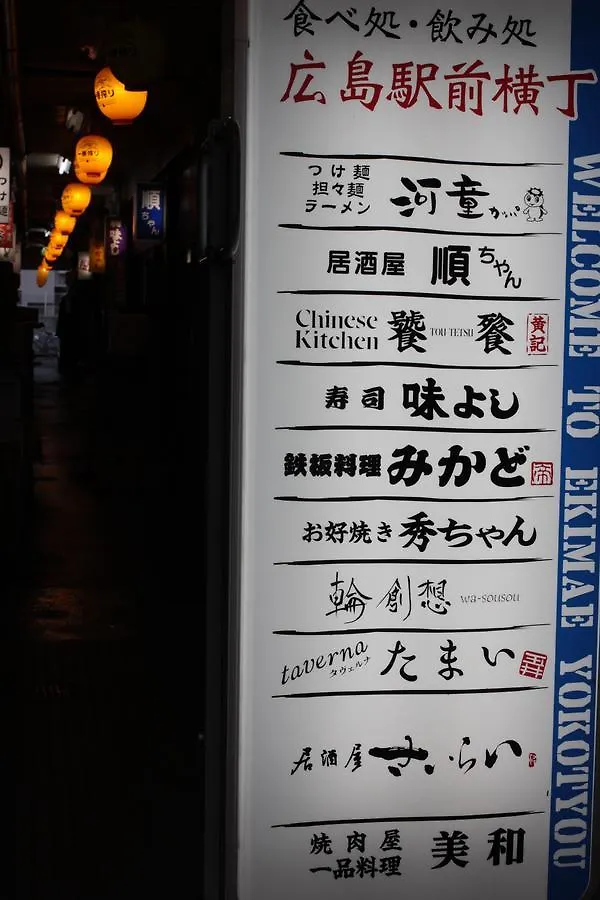 食べ処・飲み処
広島駅前横丁
つけ麺
担々麺
ラーメン
河童
居酒屋 順ちゃん
Chinese
Kitchen
饕 TOU TETSU 餮
黄記
寿司 味よし
鉄板料理 みかど
帝
お好焼き 秀ちゃん
輪 創 想 wa-sousou
taverna
タヴェルナ
たまい
居酒屋 さいらい
焼肉屋
一品料理
美和
WELCOME TO EKIMAE YOKOTYOU
一番搾り
順ちゃん
味よし